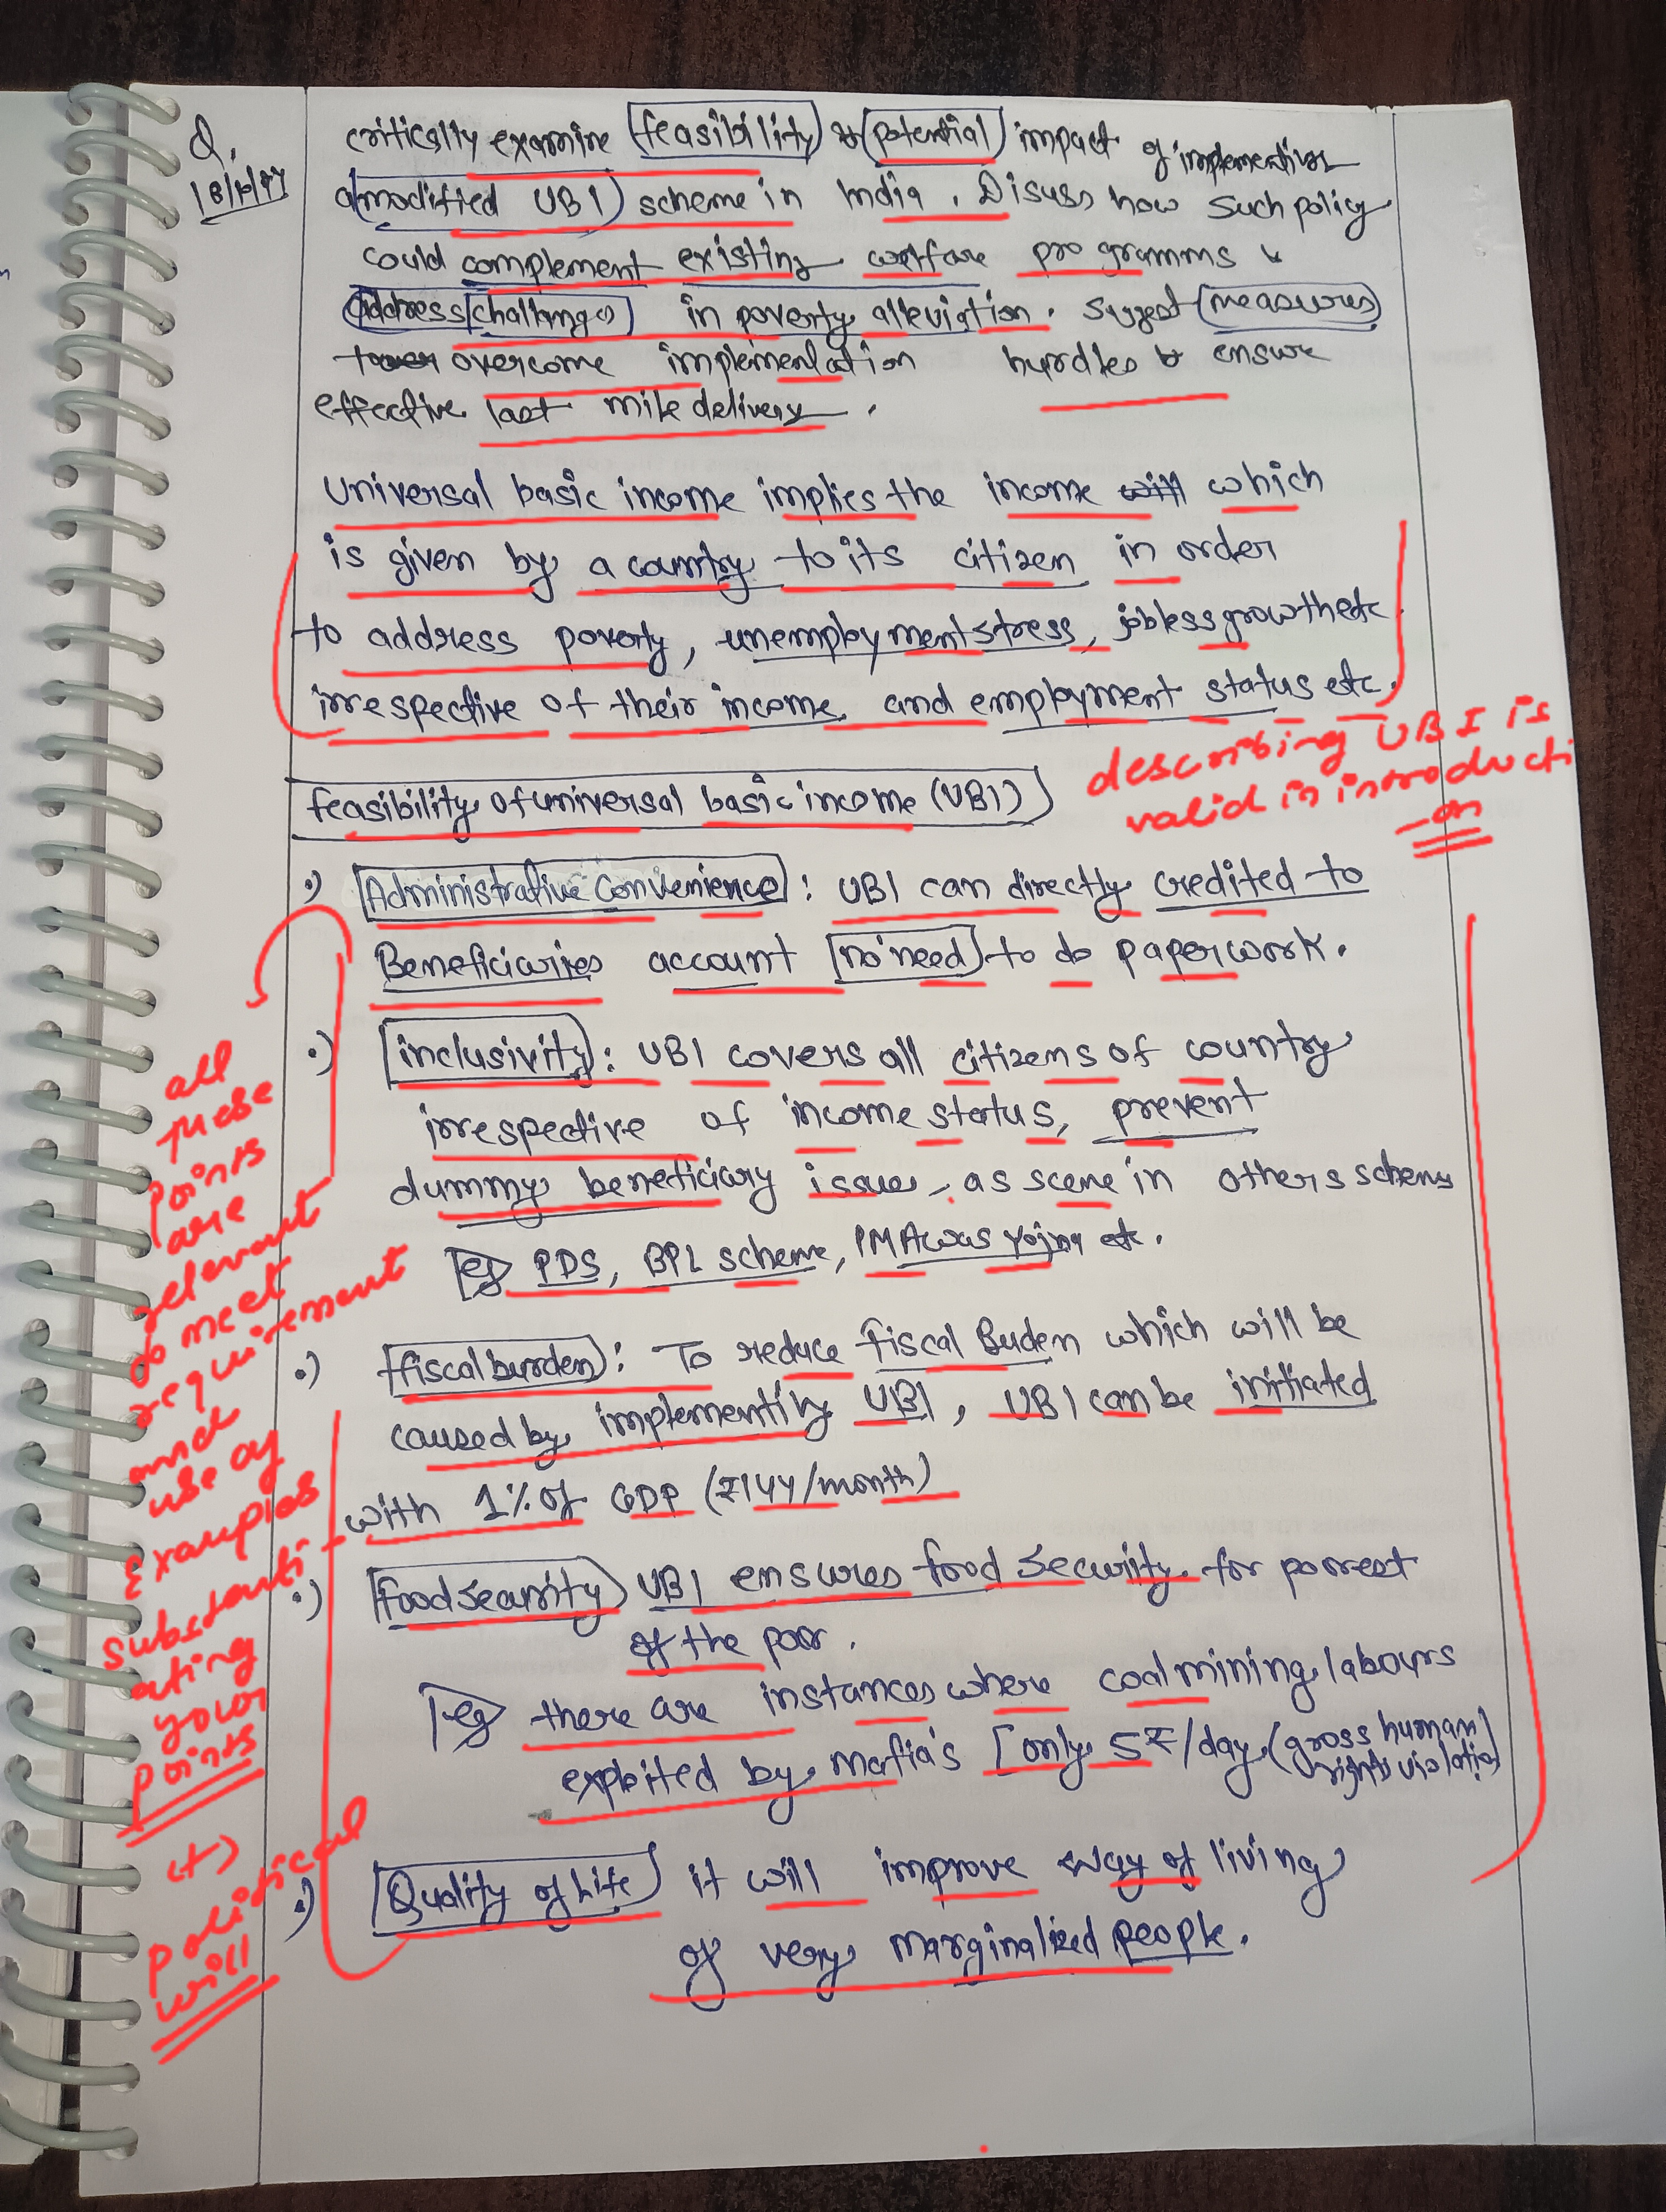 Q.
critically examine feasibility & potential impact of implementing
a modified UBI scheme in India. Disuss how such policy
could complement existing welfare programms &
address challenges in poverty alleviation. suggest measures
to overcome implementation hurdles & ensure
effective last mile delivery.
Universal basic income implies the income will which
is given by a country to its citizen in order
to address poverty, unemployment stress, jobless growth etc
irrespective of their income and employment status etc.
describing UBI is
valid in introducti
-on
feasibility of universal basic income (UBI)
Administrative Convenience: UBI can directly credited to
Beneficiaries account no need to do paperwork.
inclusivity: UBI covers all citizens of country
irrespective of income status, prevent
dummy beneficiary issue, as scene in others schems
eg PDS, BPL scheme, PM Awas Yojna etc.
fiscal burden: To reduce fiscal Buden which will be
caused by implementing UBI, UBI can be initiated
with 1% of GDP (₹144/month)
food security UBI ensures food security for porrest
of the poor.
eg there are instances where coal mining labours
exploited by mafia's only 5₹/day (gross human
rights violation)
Quality of Life it will improve way of living
of very marginalized people.
all
these
points
are
relevant
do meet
requirement
and
use of
Examples
substanti-
ating
your
points
(+)
political
will